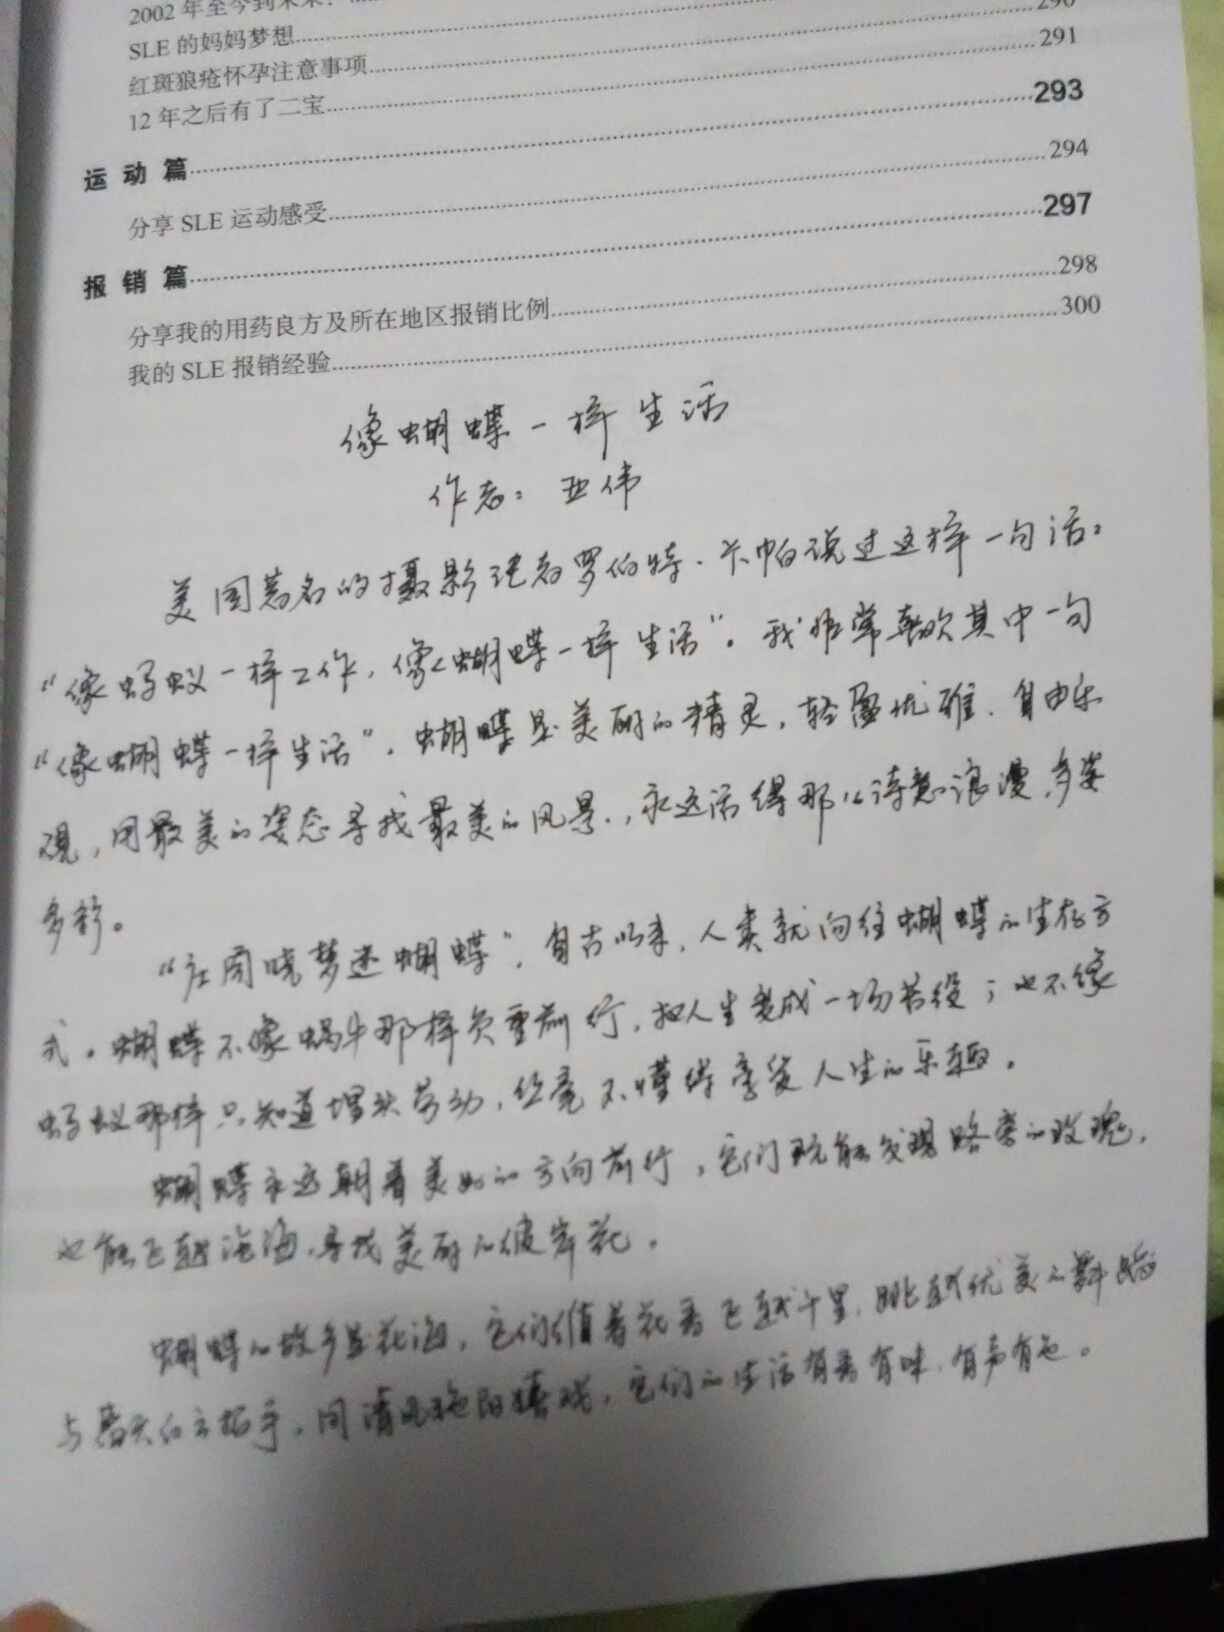 2002年至今到未来
SLE的妈妈梦想 290
红斑狼疮怀孕注意事项 291
12年之后有了二宝
运动篇 293
分享SLE运动感受 294
报销篇 297
分享我的用药良方及所在地区报销比例 298
我的SLE报销经验 300
像蝴蝶一样生活
作者：亚伟
美国著名的摄影记者罗伯特·卡帕说过这样一句话：
“像蚂蚁一样工作，像蝴蝶一样生活”。我非常喜欢其中一句
“像蝴蝶一样生活”，蝴蝶是美丽的精灵，轻盈优雅、自由乐
观，用最美的姿态寻找最美的风景，永远活得那么诗意浪漫，多姿
多彩。
“庄周晓梦迷蝴蝶”，自古以来，人类就向往蝴蝶的生存方
式。蝴蝶不像蜗牛那样负重前行，把人生变成一场苦役；也不像
蚂蚁那样只知道埋头劳动，丝毫不懂得享受人生的乐趣。
蝴蝶永远朝着美好的方向前行，它们既能发现路旁的玫瑰，
也能飞越沧海，寻找美丽的彼岸花。
蝴蝶的故乡是花海，它们循着花香飞越千里，跳越优美的舞蹈
与蓝天白云招手，同清风艳阳嬉戏，它们的生活有香有味，有声有色。